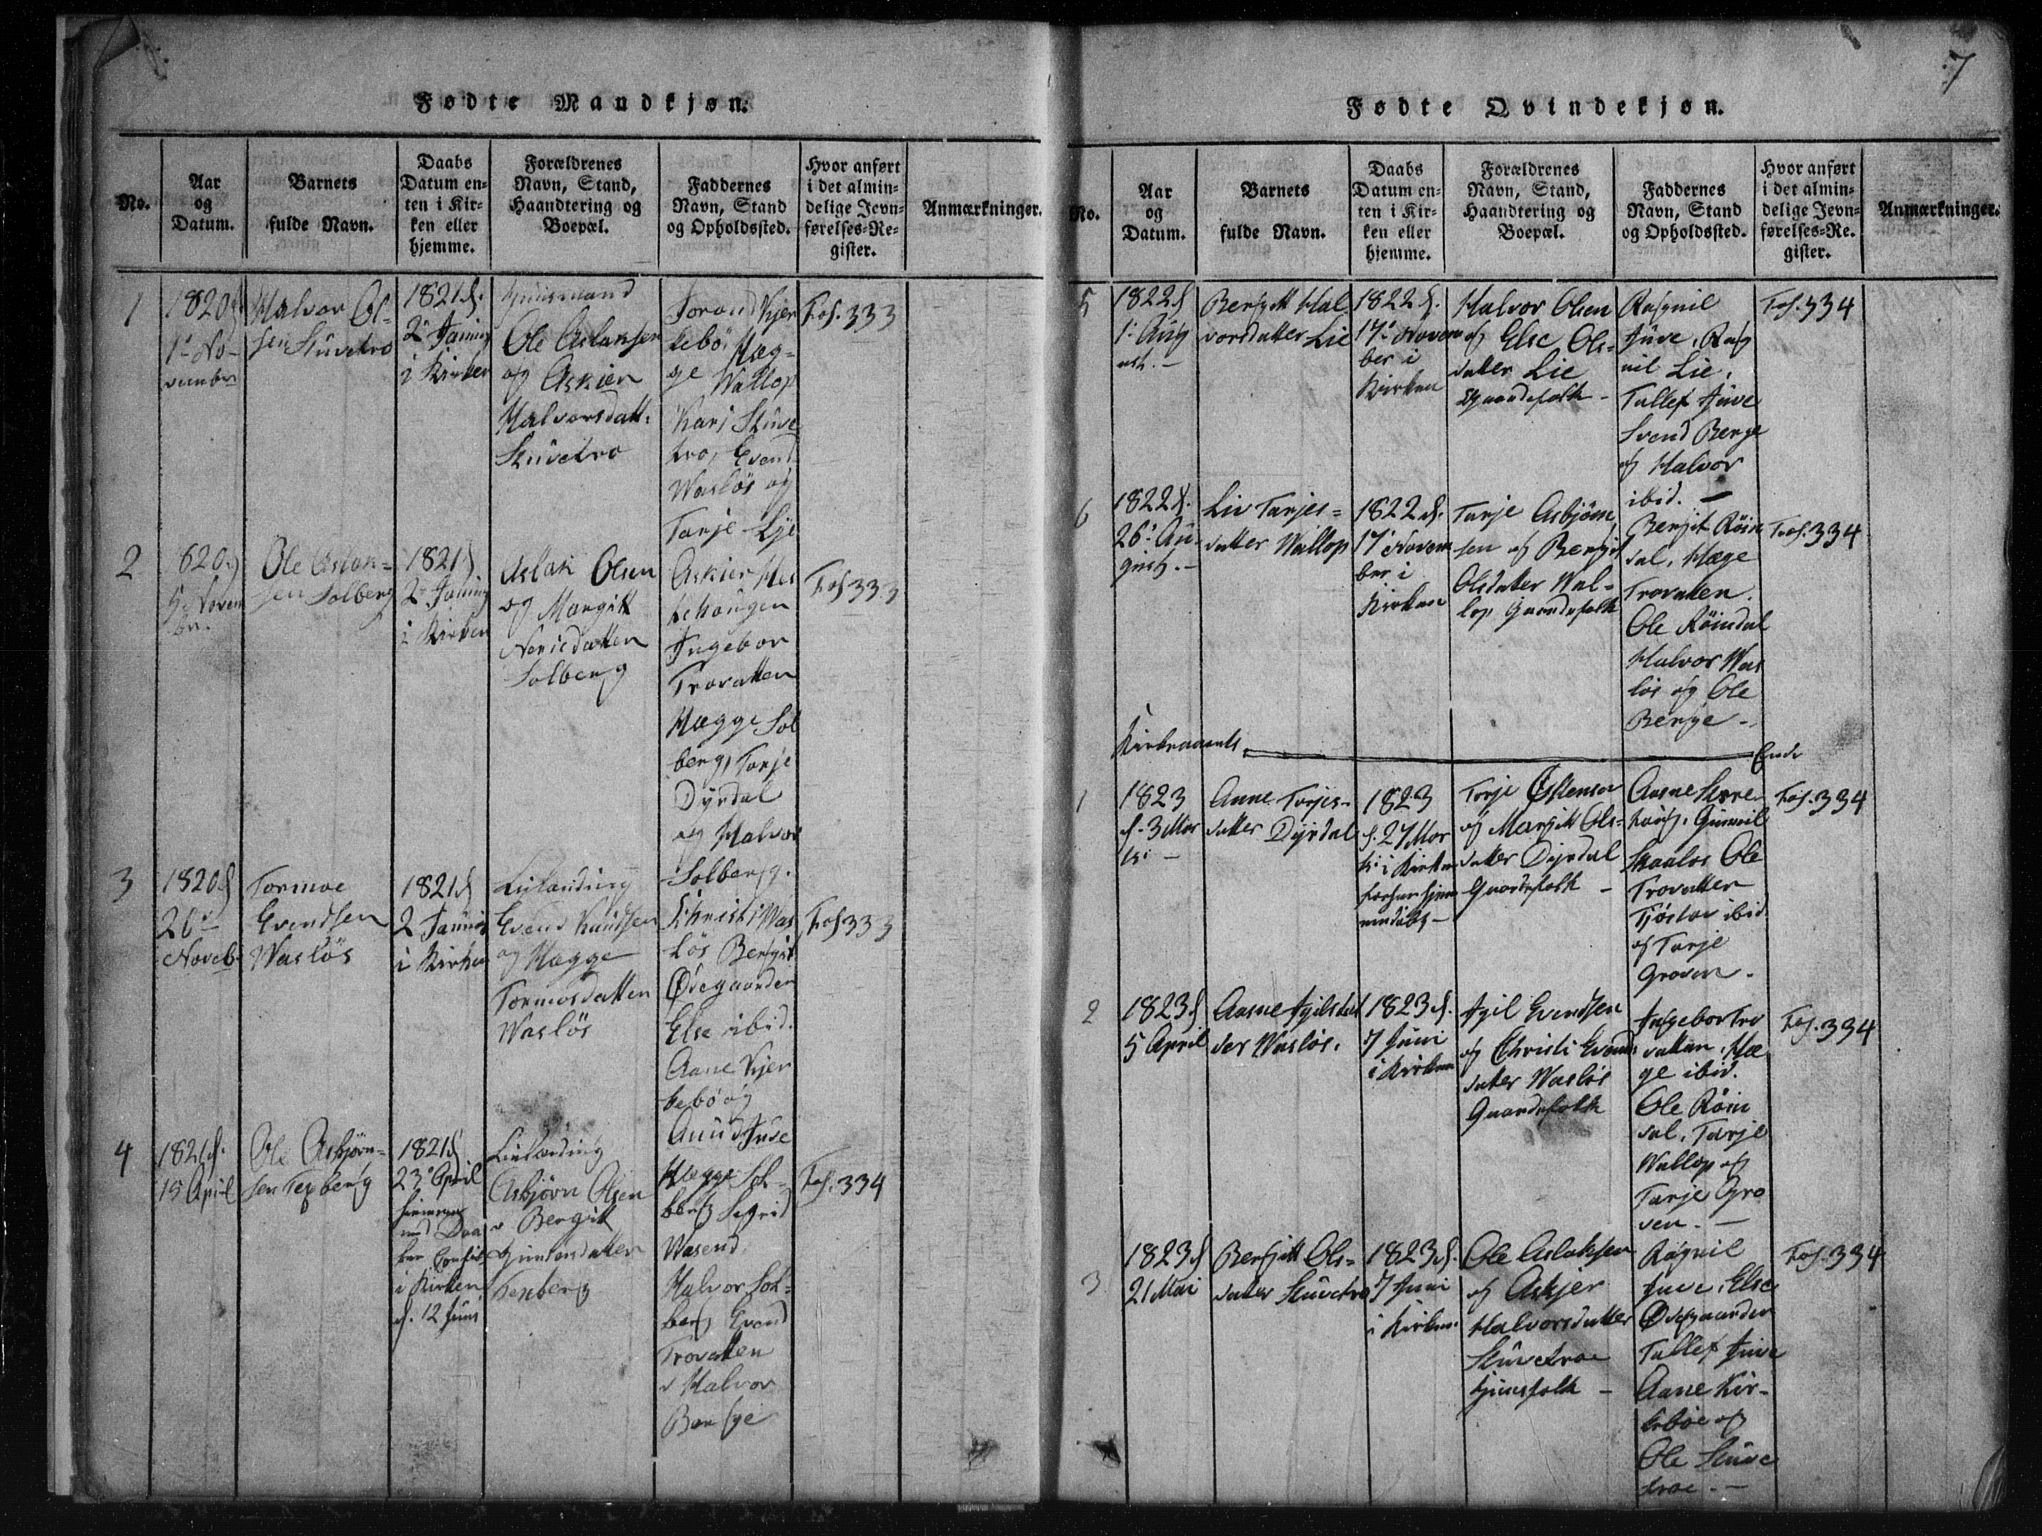 Fødte Mandkjøn.
No.
Aar
og
Datum.
Barnets
fulde Navn.
Daabs
Datum en-
ten i Kir-
ken eller
hjemme.
Forældrenes
Navn, Stand,
Haandtering og
Boepæl.
Faddernes
Navn, Stand
og Opholdssted.
Hvor anført
i det almin-
delige Jevn-
førelses-Re-
gister.
Anmærkninger.
1
1820
1te No-
vember
Halvor Ol-
sen Stuvetro
1821 d.
2
i Kirken
Huusmand
Ole Aslaksen
og Askier
Halvorsdatt.
Stuvetro
Torond Kjer
kebö, Hæg-
ge Wallop
Kari Stuve
tro, Evend
Waslös og
Tarje Lie
Fol. 333
2
820
5 Novem
br.
Ole Aslak-
sen Solberg
1821
2
i Kirken
Aslak Olsen
og Margit
datter
Solberg
Askier
Ingebor
Trovatten
Hægge Sol
berg, Tarje
Dyrdal
og Halvor
Solberg.
Fol 333
3
1820 d
26
Noveb
Tormoe
Evendsen
Waslös
1821 d
2
i Kirken
Evend Knudsen
og Hægge
Tormosdatter
Waslös
Christi Was
lös Bergit
Ødegaarden
Else ibid.
Aane Kjer
kebö og
Anund Juve
Fol 333
4
1821 d.
15 April
Ole Asbjørn-
sen Texberg
1821 d
23 April
i Kirken
d. 12 Juni
Asbjørn Olsen
Bergit
datter
Texberg
Hægge Sol-
berg Segrid
Wasend
Halvor Sol-
berg Evend
Trovatten
Halvor
Berge
Fol. 334
7
Fødte Qvindekjøn.
No.
Aar
og
Datum.
Barnets
fulde Navn.
Daabs
Datum en-
ten i Kir-
ken eller
hjemme.
Forældrenes
Navn, Stand,
Haandtering og
Boepæl.
Faddernes
Navn, Stand
og Opholdssted.
Hvor anført
i det almin-
delige Jevn-
førelses-Re-
gister.
Anmærkninger.
5
1822 d
1. Aug
ust. -
Bergit Hal
vorsdatter Lie
1822 d.
17 Novem
ber i
Kirken
Halvor Olsen
og Else Ols-
datter Lie
Gaardefolk -
Ragnil
Juve, Rag
nil Lie,
Tallef Juve
Svend Berge
og Halvor
ibid. -
Fol. 334
6
1822 d.
26 Au-
gust. -
Liv Tarjes-
datter Wallop
1822 d.
17 Novem
ber i
Kirken
Tarje Asbjørn
sen og Bergit
Olsdatter Wal-
lop Gaardefolk
Bergit Röin
dal, Hæge
Trovatten.
Ole Röindal
Halvor Was
lös og Ole
Berge -
Fol. 334
Kirkeaarets
Ende
1
1823
d. 3 Mar
ts -
Anne Tarjes-
datter Dyrdal
1823
d. 27 Mar
ts i Kirken
Torje
og Margit Ols-
datter Dyrdal
Gaardefolk -
Aasne
Gunnil
Ole
Trovatten
Tjöstov ibid
og Tarje
Groven -
Fol. 334
2
1823 d
5 April
Aasne
datter Waslös.
1823 d.
7 Juni
i Kirken
Evendsen
og Christi Evends
datter Waslös
Gaardefolk
Ingebor Tro
vatten, Hæ
ge ibid.
Ole Röin
dal, Tarje
Wallop og
Tarje Gro
ven. -
Fol. 334
3
1823 d
21 Mai
Bergit Ols-
datter Stuvetro
1823 d.
7 Juni
i Kirken
Ole Aslaksen
og Askjer
Halvorsdatter
Stuvetroe
Huusfolk -
Ragnil
Juve, Else
Ødegaarden
Tallef Juve
Aane Kir-
keböe og
Ole Stuve
troe. -
Fol. 334